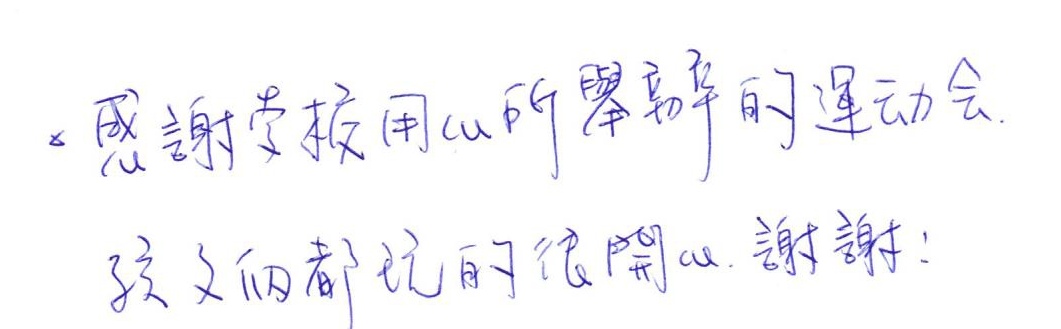 。感謝学校用心所舉辦的運动会.
孩子们都玩的很開心.謝謝!